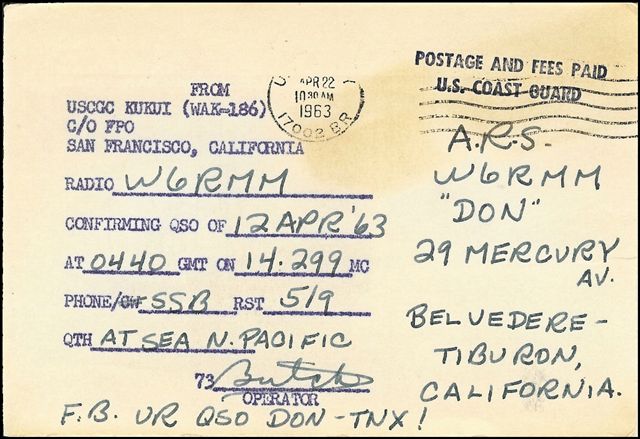 FROM
USCGC KUKUI (WAK-186)
C/O FPO
SAN FRANCISCO, CALIFORNIA
RADIO W6RMM
CONFIRMING QSO OF 12 APR '63
AT 0440 GMT ON 14.299 MC
PHONE/CW SSB RST 5/9
QTH AT SEA N. PACIFIC
73 Butch
OPERATOR
F.B. UR QSO DON-TNX!
APR 22
10 30 AM
1963
17002 BR
POSTAGE AND FEES PAID
U.S. COAST GUARD
A.R.S.
W6RMM
"DON"
29 MERCURY
AV.
BELVEDERE-
TIBURON,
CALIFORNIA.